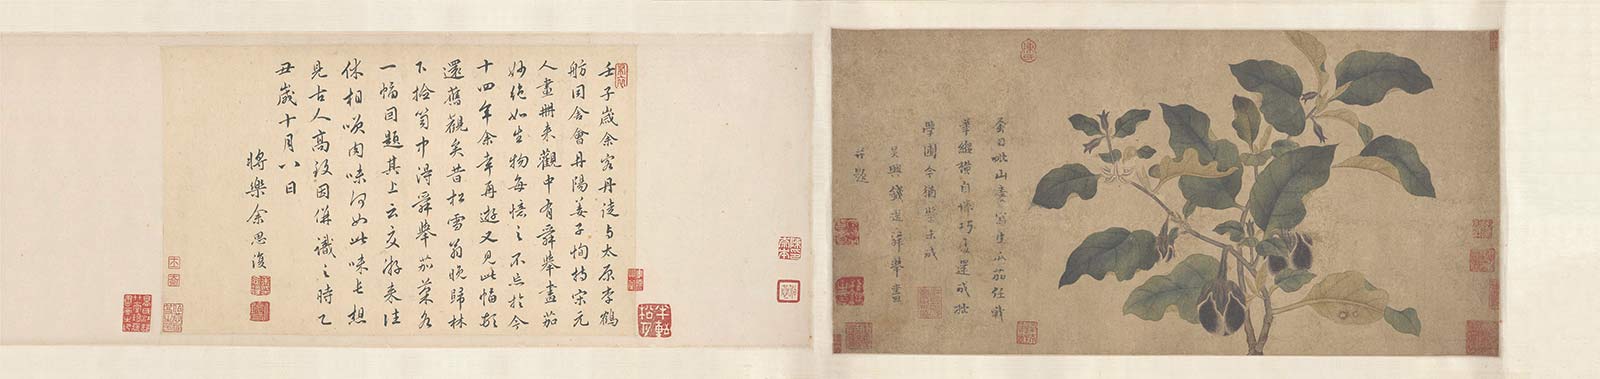 昔日毗山愛寫生瓜茄任我
筆縱橫自憐巧處還成拙
學圃今猶學未成
吳興錢選舜舉畫
并題
壬子歲余客丹徒与太原李鶴
舫同舍會丹陽姜子恂持宋元
人畫冊来觀中有舜舉畫茄
妙絶如生物每憶之不忘於今
十四年余幸再遊又見此幅頓
還舊觀矣昔松雪翁晚歸林
下撿笥中得舜舉茄菜各
一幅因題其上云交游来往
休相嘆肉味何如此味长想
見古人高致因併識之時乙
丑歲十月八日
將樂余思復